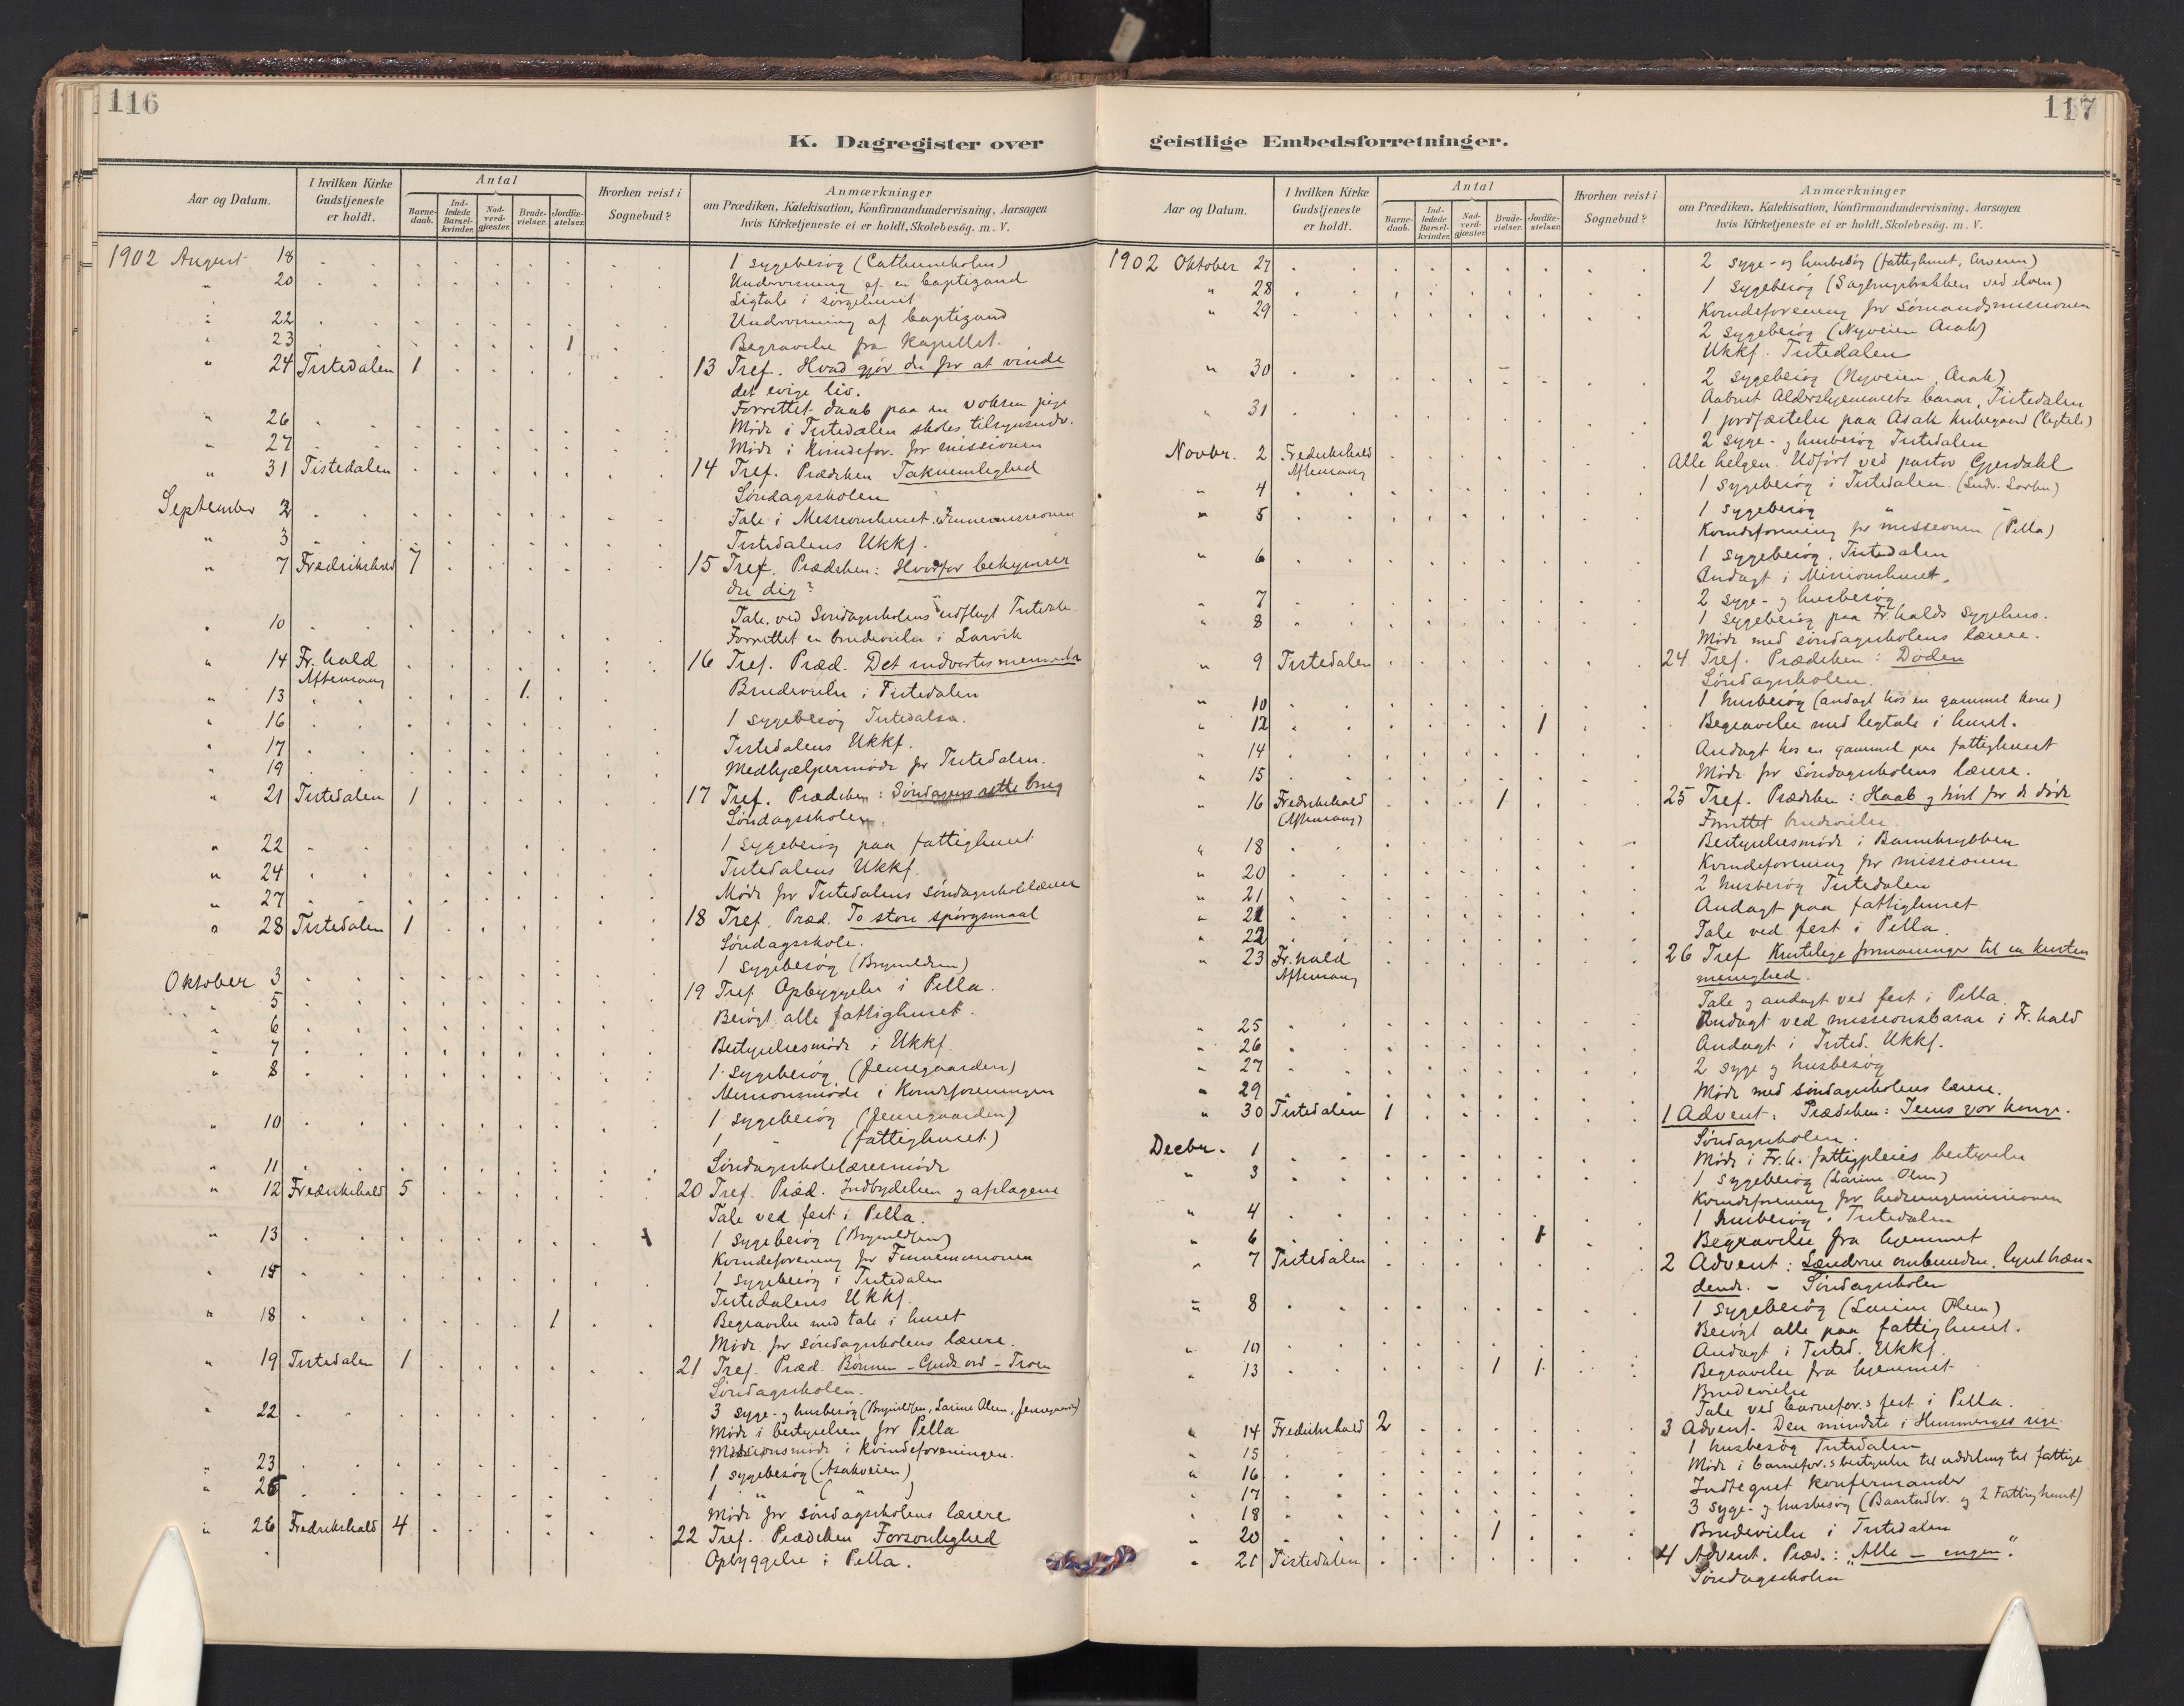 116
K. Dagregister over
Aar og Datum.
I hvilken Kirke Gudstjeneste er holdt.
Antal
Barne-daab.
Ind-ledede Barsel-kvinder.
Nad-verd-gjæster.
Brude-vielser.
Jordfæ-stelser.
Hvorhen reist i Sognebud?
Anmærkninger
om Prædiken, Katekisation, Konfirmandundervisning, Aarsagen
hvis Kirketjeneste ei er holdt, Skolebesög. m. V.
1902 August 18 1 sygebesøg (Cathrineholm)
" 20 Undervisning af en baptizand
Ligtale i sørgehuset
" 22 Undervisning af baptizand
" 23 1 Begravelse fra Kapellet.
" 24 Tistedalen 1 13 Tref. Hvad gjør du for at vinde
det evige liv.
Forrettet daab paa en voksen pige
" 26 Møde i Tistedalen skoles tilsynsudv.
" 27 Møde i Kvindefor. for missionen
" 31 Tistedalen 14 Tref. Prædiken Taknemlighed
Søndagsskolen
September 2 Tale i Missionshuset. Finnemissionen
" 3 Tistedalens Ukkf.
" 7 Fredrikshald 7 15 Tref. Prædiken: Hvorfor bekymrer
du dig?
Tale ved Søndagsskolens udflugt Tistedalen
" 10 Forrettet en brudevielse i Larvik
" 14 Fr.hald 16 Tref. Præd. Det indvortes menneske
Aftensang
" 13 1. Brudevielse i Tistedalen
" 16 1 sygebesøg Tistedalen.
" 17 Tistedalens Ukkf.
" 19 Medhjælpermøde for Tistedalen.
" 21 Tistedalen 1 17 Tref. Prædiken: Søndagens rette brug
Søndagsskolen.
" 22 1 sygebesøg paa fattighuset
" 24 Tistedalens Ukkf.
" 27 Møde for Tistedalens søndagsskolelærere
" 28 Tistedalen 1 18 Tref. Præd. To store spørgsmaal
Søndagsskole.
Oktober 3 1 sygebesøg (Brynildsen)
" 5 19 Tref. Opbyggelse i Pella.
" 6 Besøgt alle fattighuset.
" 7 Bestyrelsesmøde i Ukkf.
" 8 1 sygebesøg (Jensegaarden)
Missionsmøde i Kvindeforeningen
" 10 1 sygebesøg (Jensegaarden)
1 " (fattighuset)
" 11 Søndagsskolelærermøde
" 12 Fredrikshald 5 20 Tref. Præd. Indbydelsen og afslagene
Tale ved fest i Pella.
" 13 1 1 sygebesøg (Brynildsen)
Kvindeforening for Finnemissionen
" 15 1 sygebesøg i Tistedalen
Tistedalens Ukkf.
" 18 1 Begravelse med tale i huset
Møde for søndagsskolens lærere.
" 19 Tistedalen 1 21 Tref. Præd. Bønnen - Guds ord - Troen
Søndagsskolen.
" 22 3 syge- og husbesøg (Brynildsen, Larine Olsen, Jensegaarden)
Møde i bestyrelsen for Pella
Missionsmøde i kvindeforeningen.
" 23 1 sygebesøg (Asakveien)
" 25 1 " ( " )
Møde for søndagsskolens lærere
" 26 Fredrikshald 4 22 Tref. Prædiken Forsonlighed
Opbyggelse i Pella.
117
geistlige Embedsforretninger.
Aar og Datum.
I hvilken Kirke Gudstjeneste er holdt.
Antal
Barne-daab.
Ind-ledede Barsel-kvinder.
Nad-verd-gjæster.
Brude-vielser.
Jordfæ-stelser.
Hvorhen reist i Sognebud?
Anmærkninger
om Prædiken, Katekisation, Konfirmandundervisning, Aarsagen
hvis Kirketjeneste ei er holdt, Skolebesög. m. V.
1902 Oktober 27 2 syge- og husbesøg (fattighuset, )
" 28 1 sygebesøg (Sagbrugsbakken ved elven)
" 29 Kvindeforening for Sømandsmissionen
2 sygebesøg (Nyveien Asak)
Ukkf. Tistedalen
" 30 2 sygebesøg (Nyveien, Asak)
Aabnet Aldershjemmets basar, Tistedalen
" 31 1 jordfæstelse paa Asak kirkegaard (ligtale)
2 syge- og husbesøg Tistedalen
Novbr. 2 Fredrikshald Alle helgen. Udført ved pastor Gjerdahl
Aftensang
" 4 1 sygebesøg i Tistedalen.
" 5 1 sygebesøg "
Kvindeforening for missionen (Pella)
" 6 1 sygebesøg, Tistedalen
Andagt i Missionshuset.
" 7 2 syge- og husbesøg
" 8 1 sygebesøg paa Fr.halds Sygehus.
Møde med søndagsskolens lærere.
" 9 Tistedalen 24 Tref. Prædiken: Døden
Søndagsskolen.
" 10 1 husbesøg (andagt hos en gammel kone)
" 12 1 Begravelse med ligtale i huset.
" 14 Andagt hos en gammel paa fattighuset
" 15 Møde for søndagsskolens lærere.
" 16 Fredrikshald 1 25 Tref. Prædiken: Haab og trøst for de døde
(Aftensang) Forrettet brudevielse
" 18 Bestyrelsesmøde i Barnekrybben
" 20 Kvindeforening for missionen
" 21 2 husbesøg Tistedalen
" 21 Andagt paa fattighuset
" 22 Tale ved fest i Pella.
" 23 Fr.hald 26 Tref Kristelige formaninger til en kristen
Aftensang menighed.
Tale og andagt ved fest i Pella.
" 25 Andagt ved missionsbasar i Fr.hald
" 26 Andagt i Tisted. Ukkf.
" 27 2 syge og husbesøg
" 29 Møde med søndagsskolens lærere.
" 30 Tistedalen 1 1 Advent. Prædiken: Jesus vor konge.
Søndagsskolen.
Decbr. 1 Møde i Fr.h. fattigpleies bestyrelse
" 3 1 sygebesøg (Larine Olsen)
Kvindeforening for hedningemissionen
" 4 1 husbesøg i Tistedalen
" 6 1 Begravelse fra hjemmet
" 7 Tistedalen 2 Advent: Lænderne ombundne, lyset bræn-
dende. - Søndagsskolen
" 8 1 sygebesøg (Larine Olsen)
Besøgt alle paa fattighuset.
" 10 Andagt i Tisted. Ukkf.
" 13 1 1. Begravelse fra hjemmet
Brudevielse
Tale ved barnefor.s fest i Pella.
" 14 Fredrikshald 2 3 Advent. Den mindste i Himmeriges rige.
" 15 1 husbesøg Tistedalen
" 16 Møde i barnefor.s bestyrelse til uddeling til fattige
" 17 Indtegnet konfirmander
" 18 3 syge- og husbesøg ( og 2 Fattighuset)
" 20 1 Brudevielse i Tistedalen
" 21 Tistedalen 4 Advent. Præd.: "Alle - ingen".
Søndagsskolen